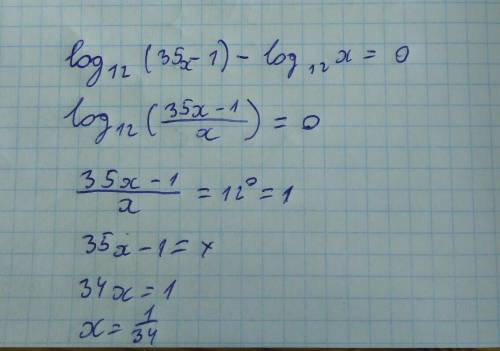 log₁₂ (35x-1) - log₁₂ x = 0
log₁₂ ((35x-1)/x) = 0
(35x-1)/x = 12⁰ = 1
35x-1 = x
34x = 1
x = 1/34